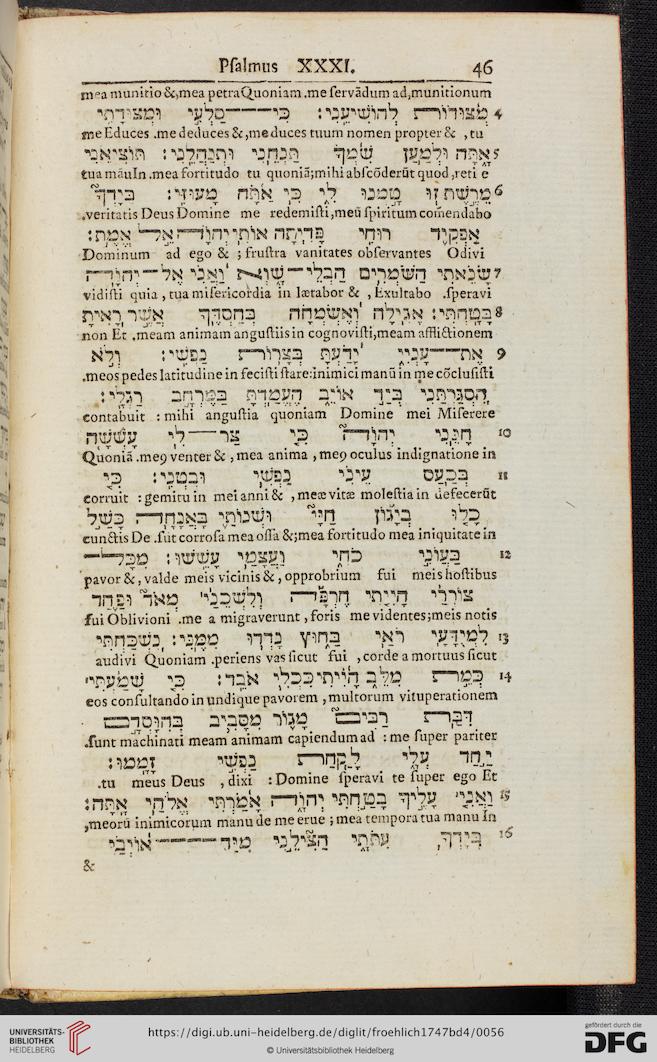 Psalmus XXXI. 46
mea munitio &,mea petraQuoniam .me servādum ad,munitionum
4 מְצוּדוֹת לְהוֹשִׁיעֵנִי׃ כִּי־סַלְעִי וּמְצוּדָתִי
me Educes .me deduces &,me duces tuum nomen propter & , tu
5 אָתָּה וּלְמַעַן שִׁמְךָ תַּנְחֵנִי וּתְנַהֲלֵנִי׃ תּוֹצִיאֵנִי
tua māuIn .mea fortitudo tu quoniā;mihi abscōderūt quod ,reti e
6 מֵרֶשֶׁת זוּ טָמְנוּ לִי כִּי אַתָּה מָעוּזִּי׃ בְּיָדְךָ
.veritatis Deus Domine me redemisti,meū spiritum comēndabo
אַפְקִיד רוּחִי פָּדִיתָה אוֹתִי יְהוָֹה אֵל אֱמֶת׃
Dominum ad ego & ; frustra vanitates observantes Odivi
7 שָׂנֵאתִי הַשֹּׁמְרִים הַבְלֵי־שָׁוְא וַאֲנִי אֶל־יְהוָֹה
vidisti quia , tua misericordia in lætabor & , Exultabo .speravi
8 בָּטָחְתִּי׃ אָגִילָה וְאֶשְׂמְחָה בְּחַסְדֶּךָ אֲשֶׁר רָאִיתָ
non Et .meam animam angustiis in cognovisti,meam afflictionem
9 אֶת־עָנְיִי יָדַעְתָּ בְּצָרוֹת נַפְשִׁי׃ וְלֹא
.meos pedes latitudine in fecisti stare:inimici manū in me cōclusisti
הִסְגַּרְתַּנִי בְּיַד אוֹיֵב הֶעֱמַדְתָּ בַמֶּרְחָב רַגְלָי׃
contabuit : mihi angustia quoniam Domine mei Miserere
10 חָנֵּנִי יְהוָֹה כִּי צַר־לִי עָשְׁשָׁה
Quoniā .meꝰ venter & , mea anima , meꝰ oculus indignatione in
11 בְכַעַס עֵינִי נַפְשִׁי וּבִטְנִי׃ כִּי
corruit : gemitu in mei anni & , meæ vitæ molestia in defecerūt
כָלוּ בְיָגוֹן חַיַּי וּשְׁנוֹתַי בַּאֲנָחָה כָּשַׁל
cunctis De .sūt corrosa mea ossa &;mea fortitudo mea iniquitate in
12 בַּעֲוֹנִי כֹחִי וַעֲצָמַי עָשֵׁשׁוּ׃ מִכָּל־
pavor & , valde meis vicinis & , opprobrium fui meis hostibus
צוֹרְרַי הָיִיתִי חֶרְפָּה וְלִשֲׁכֵנַי מְאֹד וּפַחַד
fui Oblivioni .me a migraverunt , foris me videntes;meis notis
13 לִמְיֻדָּעָי רֹאַי בַּחוּץ נָדְדוּ מִמֶּנִּי׃ נִשְׁכַּחְתִּי
audivi Quoniam .periens vas sicut fui , corde a mortuus sicut
14 כְּמֵת מִלֵּב הָיִיתִי כִּכְלִי אֹבֵד׃ כִּי שָׁמַעְתִּי
eos consultando in undique pavorem , multorum vituperationem
דִּבַּת רַבִּים מָגוֹר מִסָּבִיב בְּהִוָּסְדָם
.sunt machinati meam animam capiendum ad : me super pariter
יַחַד עָלַי לָקַחַת נַפְשִׁי זָמָמוּ׃
.tu meus Deus , dixi : Domine speravi te super ego Et
15 וַאֲנִי עָלֶיךָ בָטַחְתִּי יְהוָֹה אָמַרְתִּי אֱלֹהַי אָתָּה׃
,meorū inimicorum manu de me erue ; mea tempora tua manu In
16 בְּיָדְךָ עִתֹּתָי הַצִּילֵנִי מִיַּד־אוֹיְבַי
&
UNIVERSITÄTS-
BIBLIOTHEK
HEIDELBERG
https://digi.ub.uni-heidelberg.de/diglit/froehlich1747bd4/0056
© Universitätsbibliothek Heidelberg
gefördert durch die
DFG